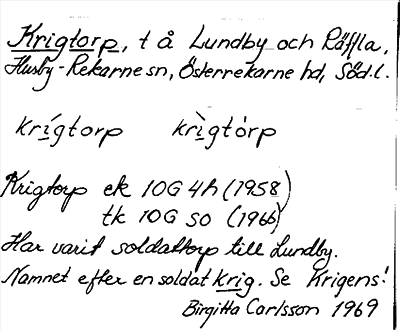 Krigtorp, t å Lundby och Räffla,
Husby-Rekarne sn, Österrekarne hd, Söd.l.
krígtorp krìgtórp
Krigtorp ek 10G 4h (1958)
tk 10G SO (1966)
Har varit soldattorp till Lundby.
Namnet efter en soldat krig. Se Krigens!
Birgitta Carlsson 1969